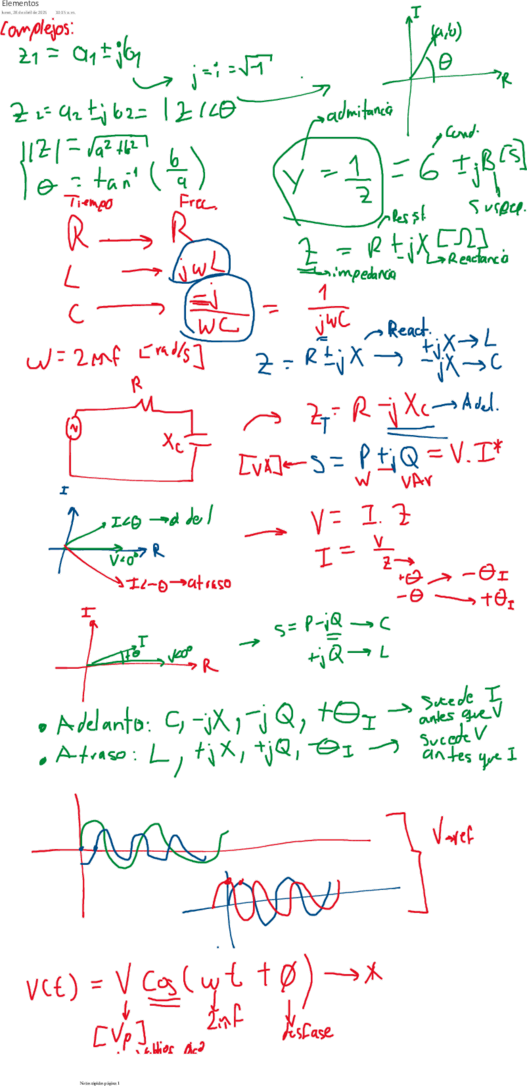 Elementos
Complejos:
z₁ = a₁ ± jb₁
j = i = √-1
I
(a,b)
θ
R
Z₂ = a₂ ± jb₂ = |Z|<θ
|Z| = √a²+b²
θ = tan⁻¹ (b/a)
admitancia
Y = 1/Z = G ± jB [S]
Cond.
Suscep.
Resist
Z = R ± jX [Ω]
impedancia
Reactancia
Tiempo Frec.
R → R
L → jωL
C → -j/ωC = 1/jωC
ω = 2πf [rad/s]
Z = R ± jX → React.
+jX → L
-jX → C
R
Xc
ZT = R - jXc → Adel.
[VA] ← S = P ± jQ = V.I*
W VAr
I
I<θ → adel
V<0° R
I<-θ → atraso
V = I. Z
I = V/Z
+θ → -θI
-θ → +θI
I
I
+θ
V<0°
R
S = P-jQ → C
+jQ → L
• Adelanto: C, -jX, -jQ, +θI → Sucede I antes que V
• Atraso: L, +jX, +jQ, -θI → Sucede V antes que I
V→ref
V(t) = V Cos(ωt + φ) → X
[Vp] 2πf desfase